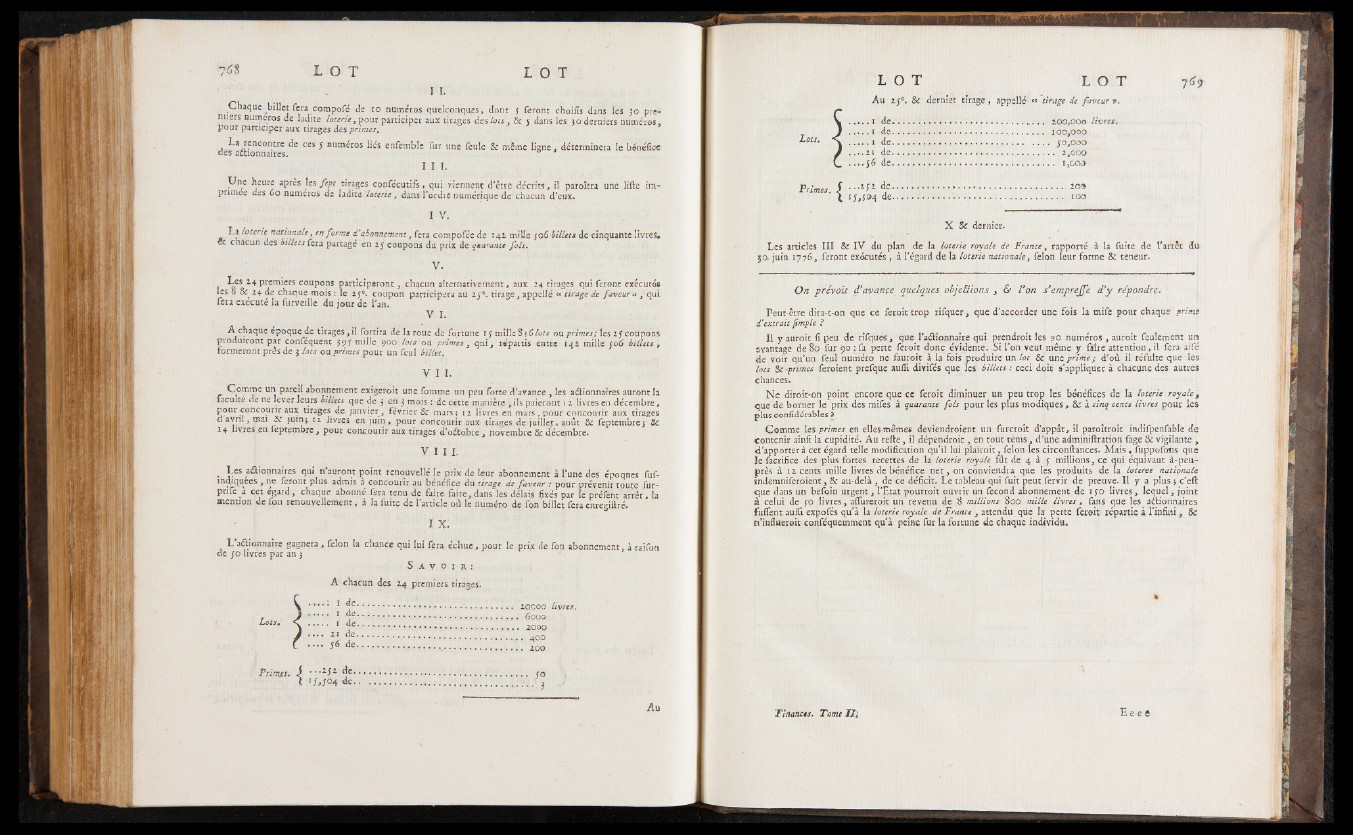 768 LOT LOT
II.
Chaque billet sera composé de 10 numéros quelconques, dont 5 seront choisis dans les 30 pre-
miers numéros de ladite loterie, pour participer aux tirages des lots, & 5 dans les 30 derniers numéros,
pour participer aux tirages des primes.
La rencontre de ces 5 numéros liés ensemble sur une seule & même ligne, déterminera le bénéfice
des actionnaires.
III.
Une heure après les sept tirages consécutifs, qui viennent d'être décrits, il paroîtra une liste im-
primée des 60 numéros de ladite loterie, dans l'ordre numérique de chacun d'eux.
IV.
La loterie nationale, en forme d'abonnement, sera composée de 142 mille 506 billets de cinquante livres,
& chacun des billets sera partagé en 25 coupons du prix de quarante sols.
V.
Les 24 premiers coupons participeront, chacun alternativement, aux 24 tirages qui seront exécutés
les 8 & 24 de chaque mois : le 25e. coupon participera au 25e. tirage, appellé « tirage de faveur », qui
sera exécuté la surveille du jour de l'an.
VI.
A chaque époque de tirages, il sortira de la roue de fortune 15 mille 836 lots ou primes; les 25 coupons
produiront par conséquent 395 mille 900 lots ou primes, qui, répartis entre 142 mille 506 billets,
formeront près de 3 lots ou primes pour un seul billet.
VII.
Comme un pareil abonnement exigeroit une somme un peu forte d'avance, les actionnaires auront la
faculté de ne lever leurs billets que de 3 en 3 mois : de cette manière, ils paieront 12 livres en décembre,
pour concourir aux tirages de janvier, février & mars; 12 livres en mars, pour concourir aux tirages
d'avril, mai & juin; 12 livres en juin, pour concourir aux tirages de juillet, août & septembre; &
14 livres en septembre, pour concourir aux tirages d'octobre, novembre & décembre.
VIII.
Les actionnaires qui n'auront point renouvellé le prix de leur abonnement à l'une des époques sus-
indiquées, ne seront plus admis à concourir au bénéfice du tirage de faveur : pour prévenir toute sur-
prise à cet égard, chaque abonné sera tenu de faire faire, dans les délais fixés par le présent arrêt, la
mention de son renouvellement, à la suite de l'article où le numéro de son billet sera enregistré.
IX.
L'actionnaire gagnera, selon la chance qui lui sera échue, pour le prix de son abonnement, à raison
de 50 livres par an;
SAVOIR:
A chacun des 24 premiers tirages.
..... 1 de........ 20000 livres.
..... 1 de........ 6000
Lots. ..... 1 de........ 2000
.... 21 de........ 400
.... 56 de........ 200
Primes. ...252 de........ 50
15,504 de........ 3
Au
LOT LOT 769
Au 25e. & dernier tirage, appellé « tirage de faveur ».
..... 1 de........ 200,000 livres.
..... 1 de........ 100,000
Lots. ..... 1 de........ 50,000
.... 21 de........ 2,000
.... 56 de........ 1,000
Primes. ...252 de........ 200
15,504 de........ 100
X & dernier.
Les articles III & IV du plan de la loterie royale de France, rapporté à la suite de l'arrêt du
30 juin 1776, seront exécutés, à l'égard de la loterie nationale, selon leur forme & teneur.
On prévoit d'avance quelques objections, & l'on s'empresse d'y répondre.
Peut-être dira-t-on que ce seroit trop risquer, que d'accorder une fois la mise pour chaque prime
d'extrait simple ?
Il y auroit si peu de risques, que l'actionnaire qui prendroit les 90 numéros, auroit seulement un
avantage de 80 sur 90 : sa perte seroit donc évidente. Si l'on veut même y faire attention, il sera aisé
de voir qu'un seul numéro ne sauroit à la fois produire un lot & une prime; d'où il résulte que les
lots & primes seroient presque aussi divisés que les billets : ceci doit s'appliquer à chacune des autres
chances.
Ne diroit-on point encore que ce seroit diminuer un peu trop les bénéfices de la loterie royale,
que de borner le prix des mises à quarante sols pour les plus modiques, & à cinq cents livres pour les
plus considérables ?
Comme les primes en elles-mêmes deviendroient un surcroît d'appât, il paroîtroit indispensable de
contenir ainsi la cupidité. Au reste, il dépendroit, en tout tems, d'une administration sage & vigilante,
d'apporter à cet égard telle modification qu'il lui plairoit, selon les circonstances. Mais, supposons que
le sacrifice des plus fortes recettes de la loterie royale fût de 4 à 5 millions, ce qui équivaut à-peu-
près à 12 cents mille livres de bénéfice net, on conviendra que les produits de la loterie nationale
indemniseroient, & au-delà, de ce déficit. Le tableau qui suit peut servir de preuve. Il y a plus; c'est
que dans un besoin urgent, l'Etat pourroit ouvrir un second abonnement de 150 livres, lequel, joint
à celui de 50 livres, assureroit un revenu de 8 millions 800 mille livres, sans que les actionnaires
fussent aussi exposés qu'à la loterie royale de France, attendu que la perte seroit répartie à l'infini, &
n'influeroit conséquemment qu'à peine sur la fortune de chaque individu.
Finances. Tome II. Eeee